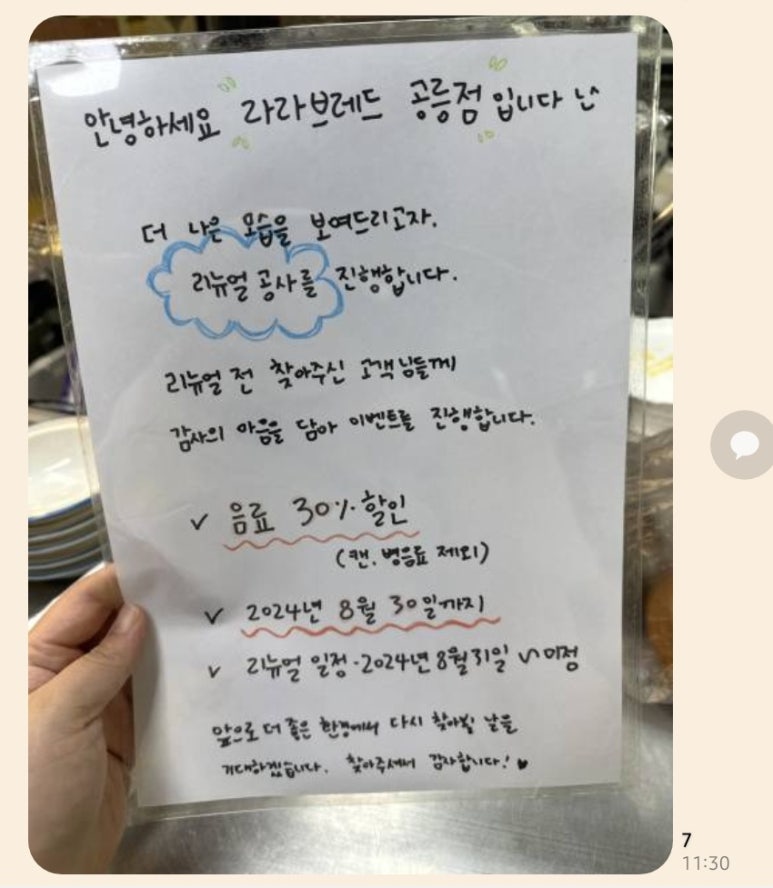 안녕하세요 라라브레드 공릉점 입니다 ^^
더 나은 모습을 보여드리고자.
리뉴얼 공사를 진행합니다.
리뉴얼 전 찾아주신 고객님들께
감사의 마음을 담아 이벤트를 진행합니다.
✓ 음료 30% 할인
(캔, 병음료 제외)
✓ 2024년 8월 30일까지
✓ 리뉴얼 일정 · 2024년 8월 31일 ~ 미정
앞으로 더 좋은 환경에서 다시 찾아뵐 날을
기대하겠습니다. 찾아주셔서 감사합니다! ♥
7
11:30